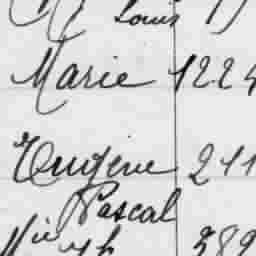 Louis
Marie 1224
Eugène 211
Pascal
389